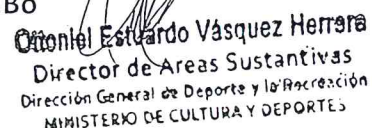 Bo
Otoniel Estuardo Vásquez Herrera
Director de Areas Sustantivas
Dirección General de Deporte y la Recreación
MINISTERIO DE CULTURA Y DEPORTES